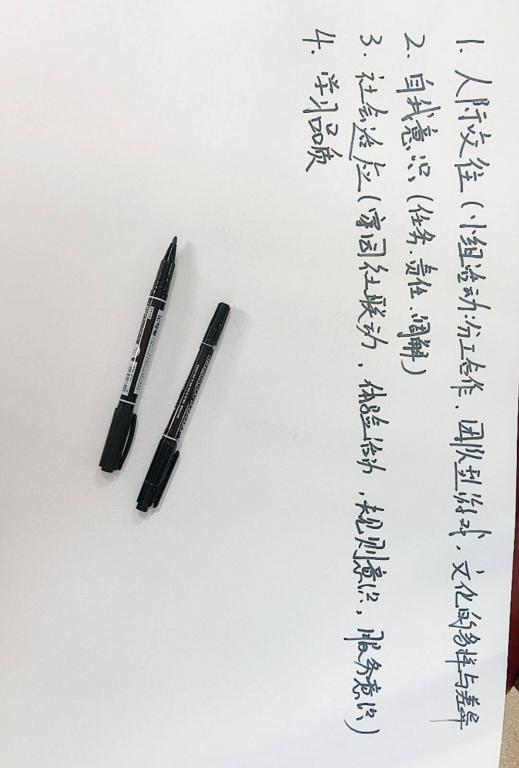 1. 人际交往（小组活动:分工合作、团队型游戏、文化的多样与差异
2. 自我意识（任务、责任、调解）
3. 社会适应（家园社联动、体验活动、规则意识、服务意识）
4. 学习品质